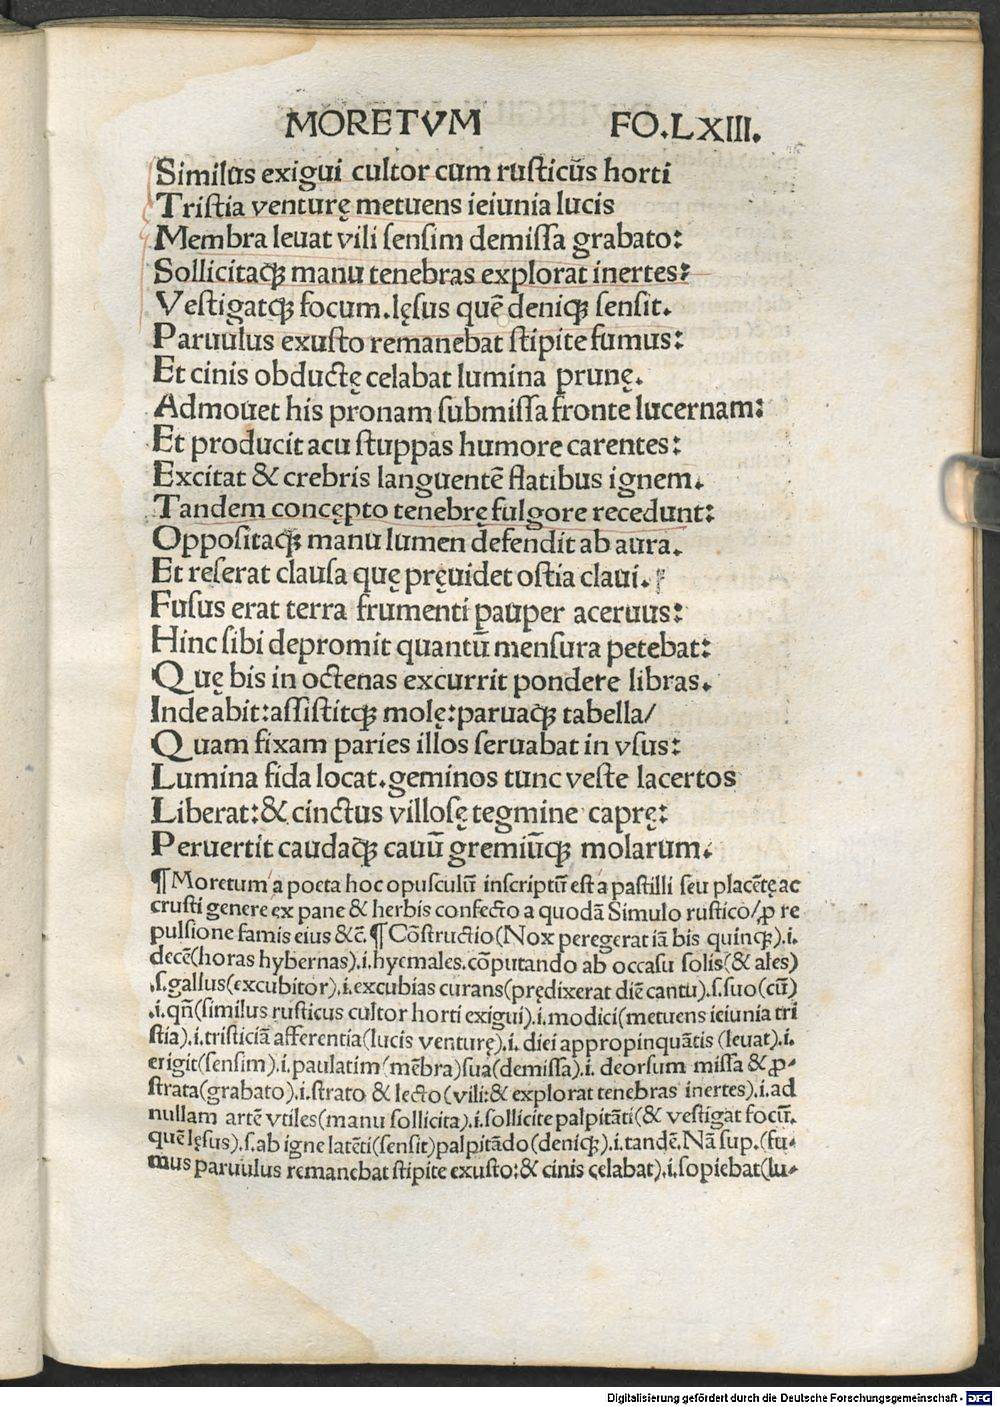 MORETVM FO.LXIII.
Similus exigui cultor cum rusticus horti
Tristia venturę metuens ieiunia lucis
Membra leuat vili sensim demissa grabato:
Sollicitaqꝫ manu tenebras explorat inertes:
Vestigatqꝫ focum.lęsus quē deniqꝫ sensit.
Paruulus exusto remanebat stipite fumus:
Et cinis obductę celabat lumina prunę.
Admouet his pronam submissa fronte lucernam:
Et producit acu stuppas humore carentes:
Excitat & crebris languentē flatibus ignem.
Tandem concępto tenebrę fulgore recedunt:
Oppositaqꝫ manu lumen defendit ab aura.
Et reserat clausa quę pręuidet ostia claui.
Fusus erat terra frumenti pauper aceruus:
Hinc sibi depromit quantū mensura petebat:
Quę bis in octenas excurrit pondere libras.
Inde abit:assistitqꝫ molę:paruaqꝫ tabella/
Quam fixam paries illos seruabat in vsus:
Lumina fida locat.geminos tunc veste lacertos
Liberat:& cinctus villosę tegmine caprę:
Peruertit caudaqꝫ cauū gremiūqꝫ molarum.
¶Moretum a poeta hoc opusculū inscriptū est a pastilli seu placētę ac
crusti genere ex pane & herbis confecto a quodā Simulo rustico/ꝓ re
pulsione famis eius &c̄.¶Cōstructio(Nox peregerat iā bis quinqꝫ).i.
decē(horas hybernas).i.hyemales.cōputando ab occasu solis(& ales)
.s.gallus(excubitor).i.excubias curans(prędixerat diē cantu).s.suo(cū)
.i.qn̄(similus rusticus cultor horti exigui).i.modici(metuens ieiunia tri
stia).i.tristiciā afferentia(lucis venturę).i.diei appropinquātis (leuat).i.
erigit(sensim).i.paulatim(mēbra)sua(demissa).i.deorsum missa & ꝓ-
strata(grabato).i.strato & lecto(vili:& explorat tenebras inertes).i.ad
nullam artē vtiles(manu sollicita).i.sollicite palpitāti(& vestigat focū.
quē lęsus).s.ab igne latēti(sensit)palpitādo(deniqꝫ).i.tandē.Nā sup.(fu-
mus paruulus remanebat stipite exusto:& cinis celabat).i.sopiebat(lu-
Digitalisierung gefördert durch die Deutsche Forschungsgemeinschaft - DFG